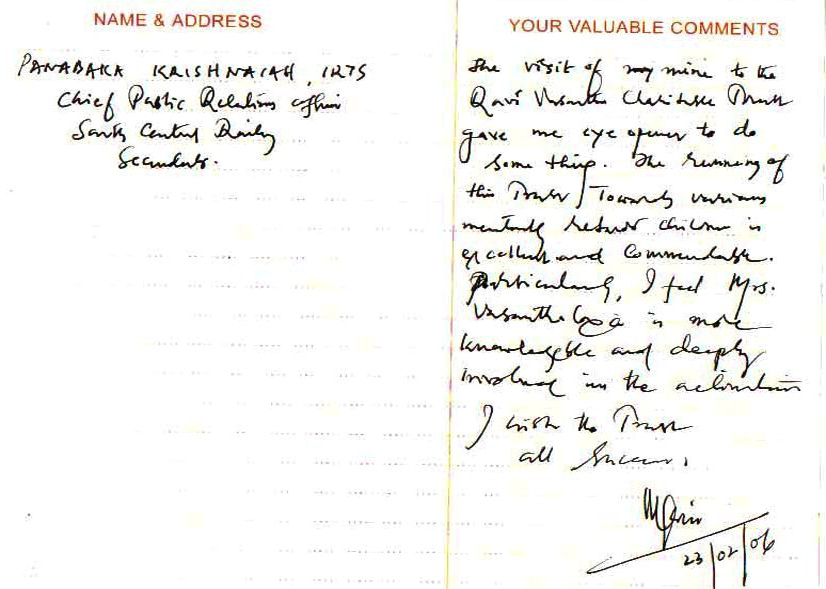 NAME & ADDRESS
PANABAKA KRISHNAIAH, IRTS
Chief Public Relations officer
South Central Railway
YOUR VALUABLE COMMENTS
The visit of mine to the
Ravi Vasantha Charitable Trust
gave me eye opener to do
some thing. The running of
this Trust Towards various
mentally retard children is
excellent and Commendable.
Particularly, I feel Mrs.
is more
knowledgeble and deeply
involved in the
I wish the Trust
all Success.
23/02/06